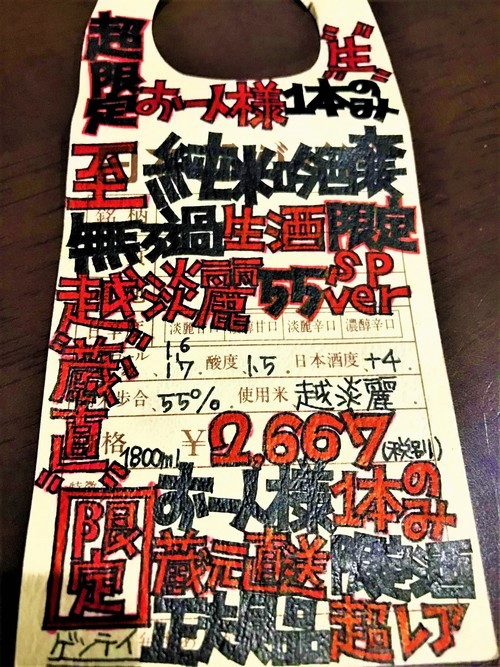 超限定
"生"
お一人様1本のみ
至 純米吟醸
無濾過生酒限定
越淡麗55 SP ver
淡麗甘口 濃醇甘口 淡麗辛口 濃醇辛口
16
17 酸度 1.5 日本酒度 +4
歩合 55% 使用米 越淡麗
"蔵直"
格 ¥2,667(税別)
1800ml
お一人様1本のみ
限定
蔵元直送限定酒
正規品超レア
ゲンテイ